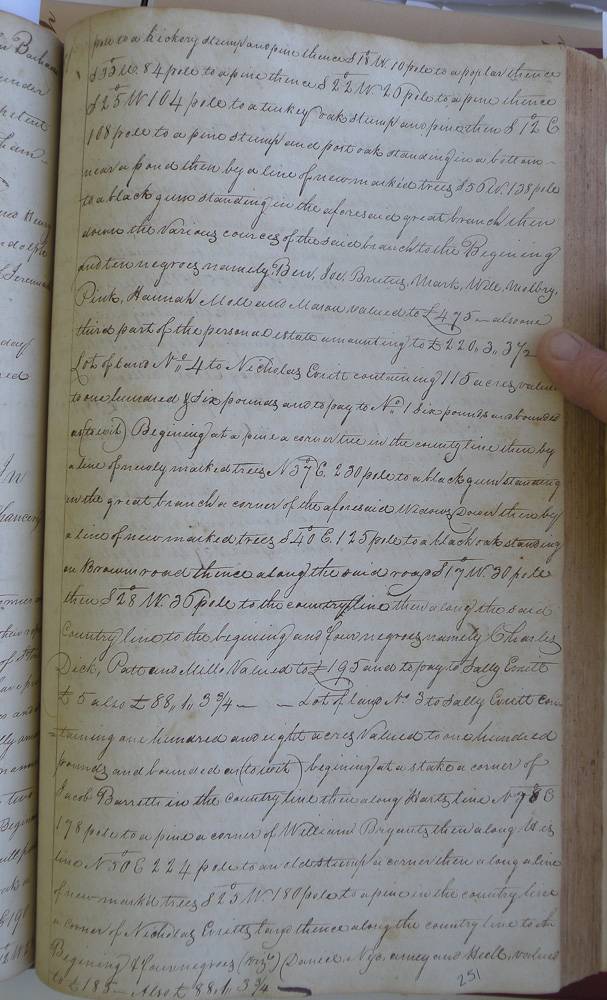 pole to a hickory stump and pine thence S 18° W. 10 pole to a poplar thence
S 35° W. 84 pole to a pine thence S 22° W. 20 pole to a pine thence
S 25° W 104 pole to a turkey oak stump and pine then S 12° E
108 pole to a pine stump and post oak standing in a bottom
near a pond then by a line of new marked trees S 50 W. 138 pole
to a black gum standing in the aforesaid great branch then
down the Various cources of the said branch to the Begining
and ten negroes namely Ben, Joe. Brutus, Mark, Will, Molbry,
Pink, Hannah Moll and Mason valued to £475 — also one
third part of the personal estate amounting to £220,,3,,3½
Lot of land No. 4 to Nicholas Evritt containing 115 acres, valued
to one hundred & Six pounds and to pay to No. 1 Six pounds and bounded
as (to wit) Begining at a pine a corner tree in the county line then by
a line of newly marked trees N 37° E. 230 pole to a black gum standing
in the great branch a corner of the aforesaid Widows Dower then by
a line of new marked trees S 40° E. 125 pole to a black oak standing
on Browns road thence along the said road S 17° W. 30 pole
then S 28° W. 36 pole to the country line then along the said
Country line to the begining and four negroes namely Charles,
Dick, Patt and Mills Valued to £195 and to pay to Sally Evritt
£5 also £88,,1,,3¾ — — Lot of land No. 3 to Sally Evritt con
=taining one hundred and eight acres Valued to one hundred
pounds and bounded as (to wit) begining at a stake a corner of
Jacob Barretts in the country line then along Harts line N 78° E
178 pole to a pine a corner of William Bryants then along his
line N 30° E 224 pole to an old stump a corner then along a line
of new marked trees S 25° W. 180 pole to a pine in the country line
a corner of Nicholas Evritts land thence along the country line to the
Begining & four negroes (Viz.) Daniel, and valued
to £185 — Also £88,,1,,3¾ —
251